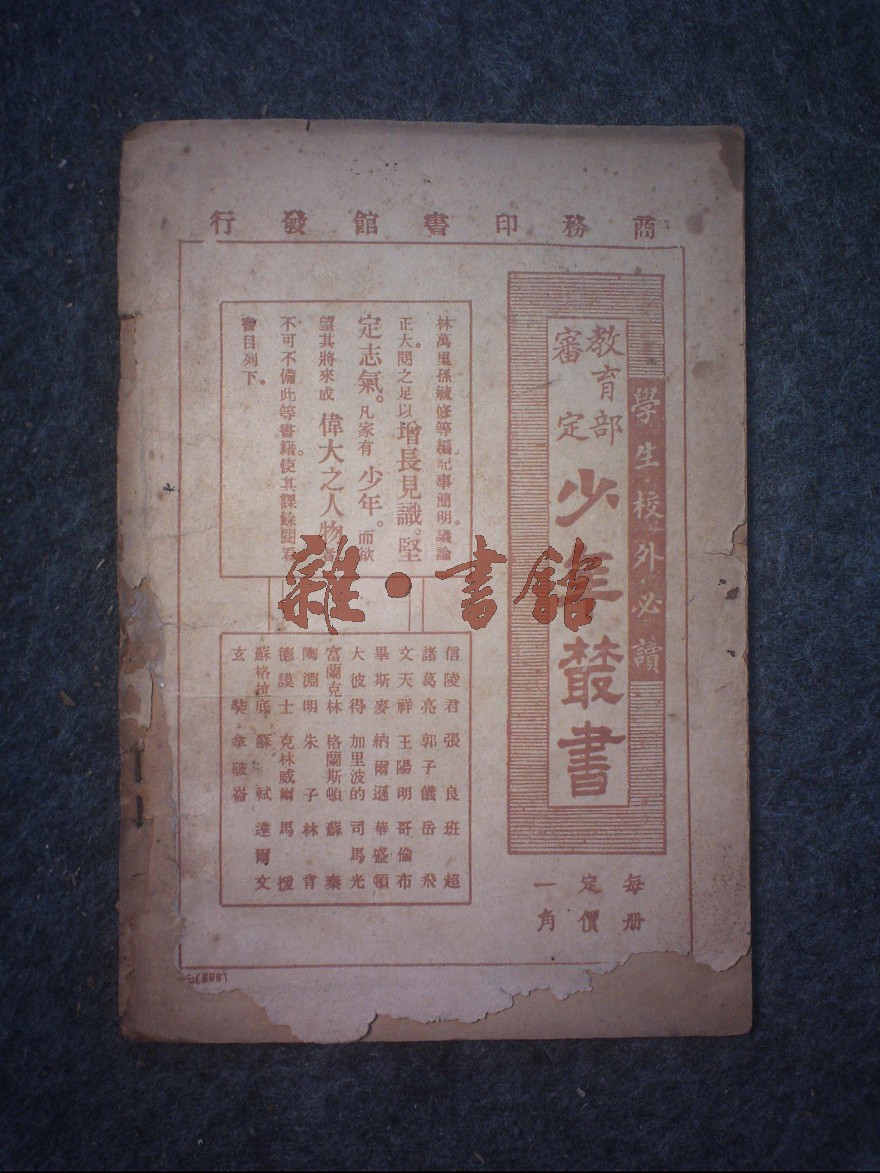 商務印書館發行
學生校外必讀
教育部
審定
少年叢書
每册
定價
一角
林萬里孫毓修等編記事簡明。議論
正大。閱之足以增長見識。堅
定志氣。凡家有少年。而欲
望其將來成偉大之人物者
不可不備此等書籍。使其課餘閱看
書目列下。
信陵君 張良 班超
諸葛亮 郭子儀 岳飛
文天祥 王陽明 哥倫布
畢斯麥 納爾遜 華盛頓
大彼得 加里波的 司馬光
富蘭克林 格蘭斯頓 蘇秦
陶淵明 朱子 林肯
德謨士 克林威爾 馬援
蘇格拉底 蘇軾 達爾文
玄奘 拿破崙
雜·書館